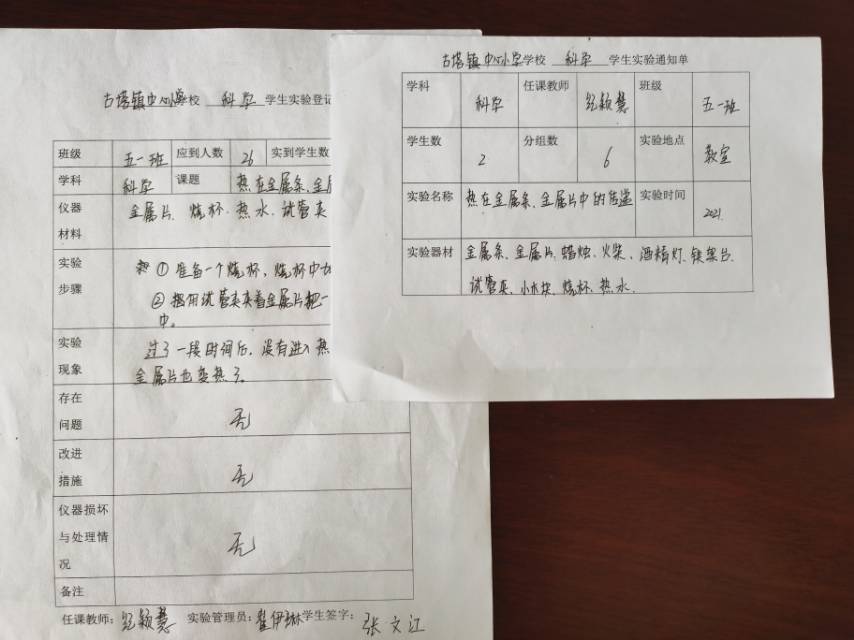 古塔镇中心小学校 科学 学生实验登记
班级 五一班 应到人数 26 实到学生数
学科 科学 课题 热在金属条、金属
仪器材料 金属片、烧杯、热水、试管夹
实验步骤 ①准备一个烧杯,烧杯中
②用试管夹夹着金属片把一
中。
实验现象 过了一段时间后,没有进入热
金属片也变热了。
存在问题 无
改进措施 无
仪器损坏与处理情况 无
备注
任课教师: 纪颖慧 实验管理员: 翟伊琳 学生签字: 张文江
古塔镇中心小学学校 科学 学生实验通知单
学科 科学 任课教师 纪颖慧 班级 五一班
学生数 2 分组数 6 实验地点 教室
实验名称 热在金属条、金属片中的传递 实验时间 2021.
实验器材 金属条、金属片、蜡烛、火柴、酒精灯、铁架台、
试管夹、小木块、烧杯、热水.